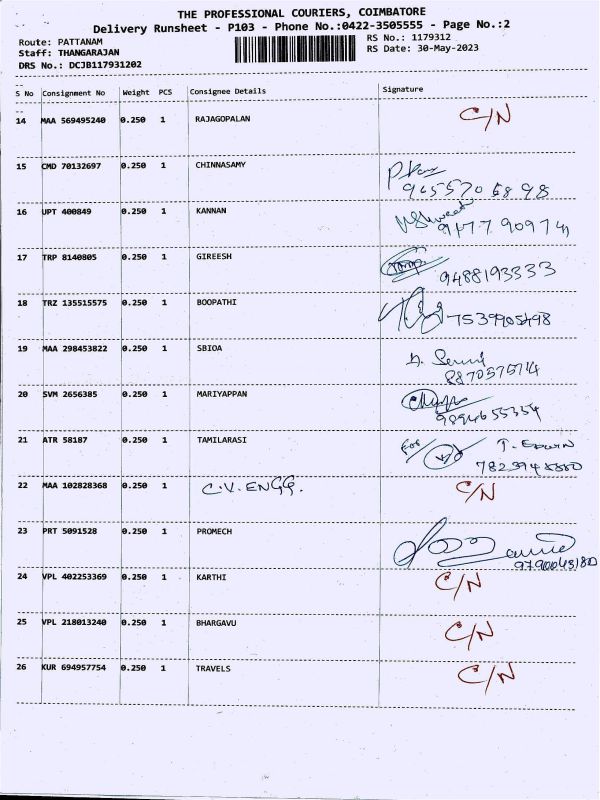 THE PROFESSIONAL COURIERS, COIMBATORE
Delivery Runsheet - P103 - Phone No.:0422-3505555 - Page No.:2
Route: PATTANAM
Staff: THANGARAJAN
DRS No.: DCJB117931202
RS No.: 1179312
RS Date: 30-May-2023
S No Consignment No Weight PCS Consignee Details Signature
14 MAA 569495240 0.250 1 RAJAGOPALAN C/N
15 CMD 70132697 0.250 1 CHINNASAMY
9655706898
16 UPT 400849 0.250 1 KANNAN
17 TRP 8140805 0.250 1 GIREESH
9488193333
18 TRZ 135515575 0.250 1 BOOPATHI
19 MAA 298453822 0.250 1 SBIOA
20 SVM 2656385 0.250 1 MARIYAPPAN
9894655354
21 ATR 58187 0.250 1 TAMILARASI
22 MAA 102828368 0.250 1 C.V. ENGG. C/N
23 PRT 5091528 0.250 1 PROMECH
9790043180
24 VPL 402253369 0.250 1 KARTHI C/N
25 VPL 218013240 0.250 1 BHARGAVU C/N
26 KUR 694957754 0.250 1 TRAVELS C/N